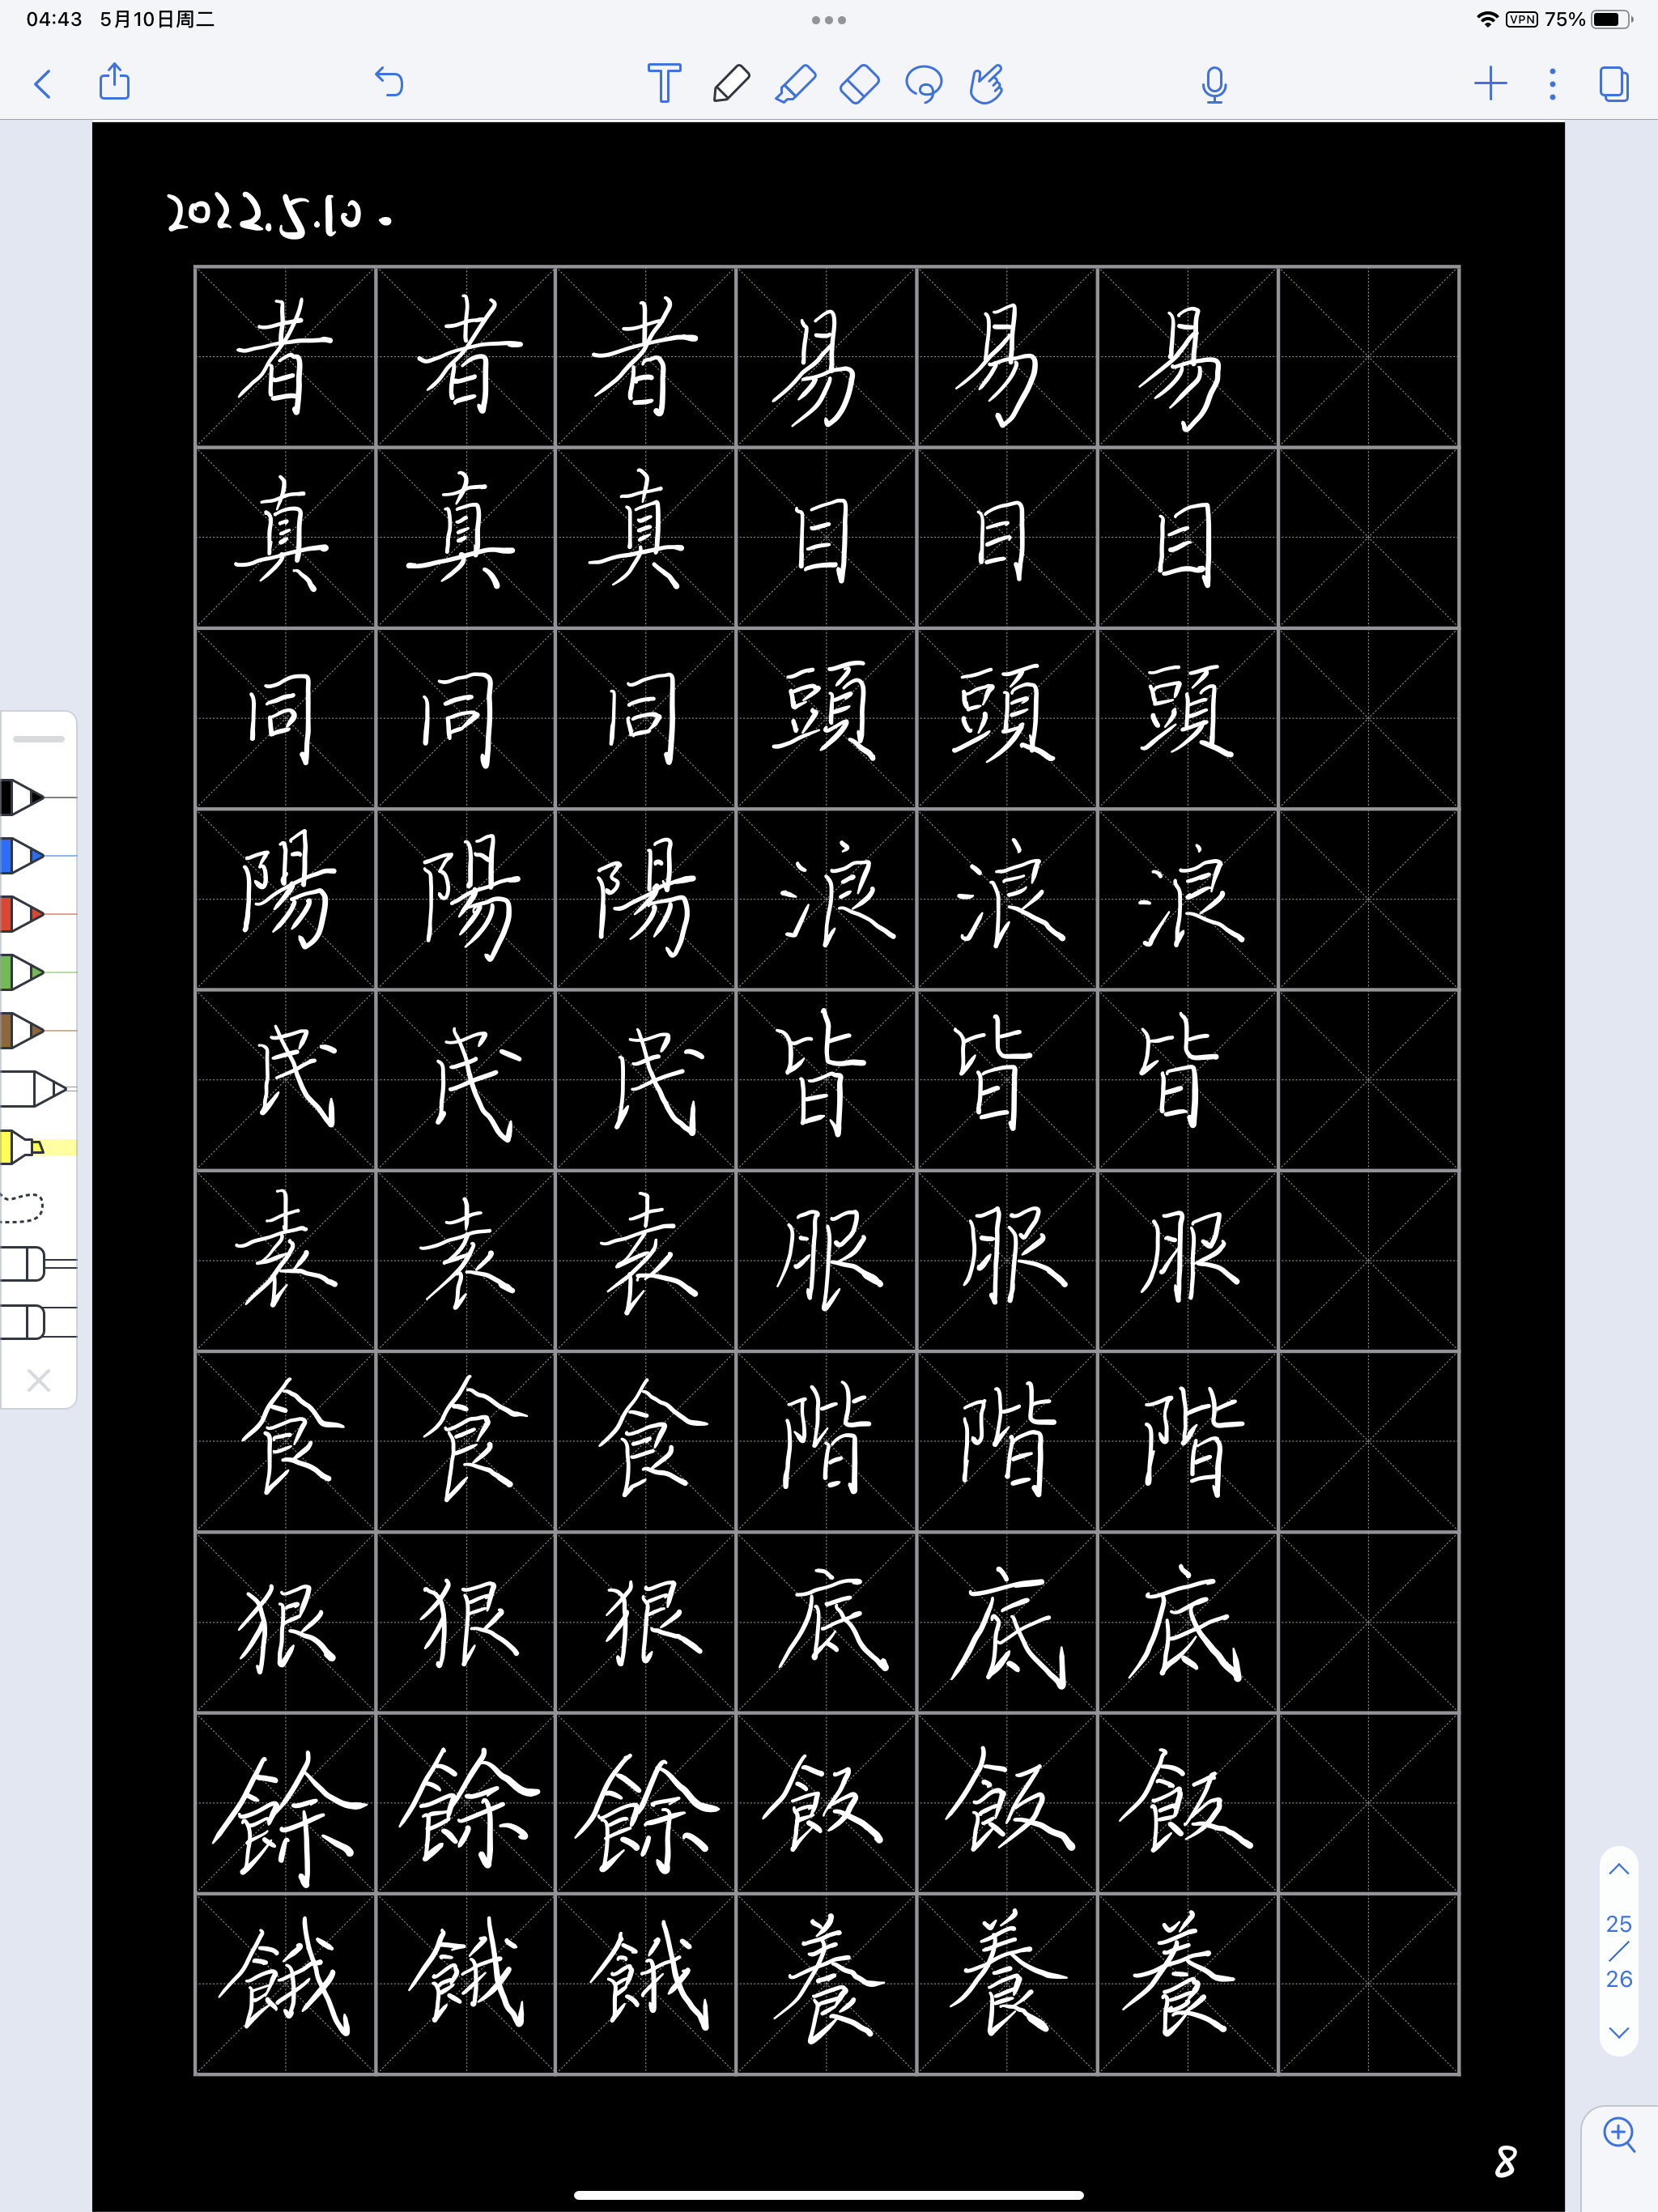 04:43 5月10日周二
VPN 75%
2022.5.10.
者者者易易易
真真真目目目
同同同頭頭頭
陽陽陽浪浪浪
民民民皆皆皆
表表表服服服
食食食階階階
狠狠狠底底底
餘餘餘飯飯飯
餓餓餓養養養
25
26
8